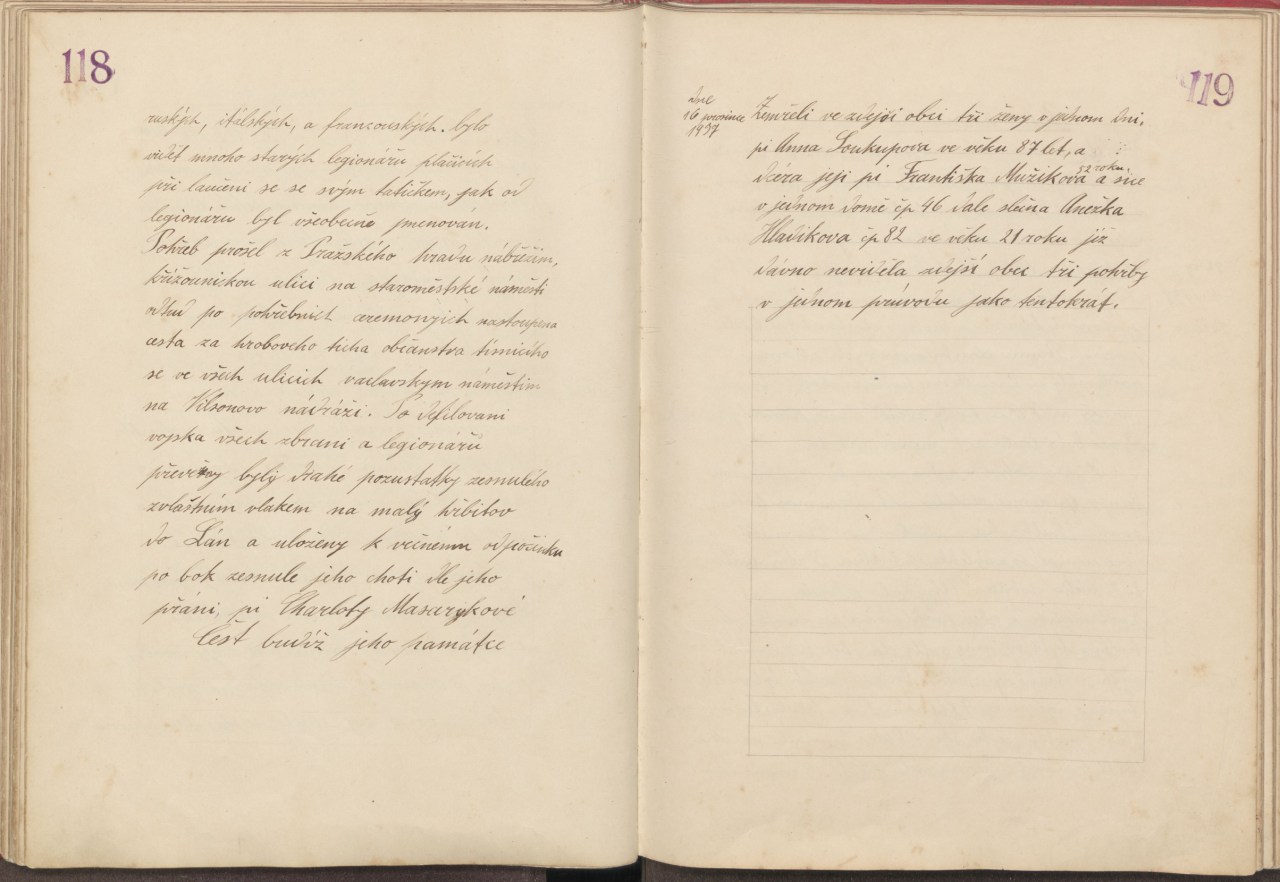 118
ruských, itálských, a francouských. bylo
vidět mnoho starých legionářu pláčících
při laučeni se se svým tatičkem, jak od
legionářu byl všeobecně jmenován.
Pohřeb prošel z Pražského hradu nábřežím,
křížovnickou ulici na staroměstské náměsti
odtud po pohřebnich ceremonyich nastoupena
cesta za hroboveho ticha občanstva tísnicího
se ve všech ulicich vaclavskym náměstim
na Vilsonovo nádraži. Po defilovani
vojska všech zbrani a legionářů
převezeny byly drahé pozustatky zesnulého
zvláštním vlakem na malý hřbitov
do Lán a uloženy k věčnému odpočinku
po bok zesnule jeho choti dle jeho
přáni, pí Charloty Masarykové
Čest budiž jeho památce
119
dne
16 prosince
1937
Zemřeli ve zdejší obci tři ženy v jednom dni,
pí Anna Soukupova ve věku 87 let, a
dcera jeji pí Františka Mužikova 52 roku a sice
v jednom domě čp 46 dale slečna Anežka
Hladikova čp 82 ve věku 21 roku již
dávno neviděla zdejší obec tři pohřby
v jednom průvodu jako tentokrát.